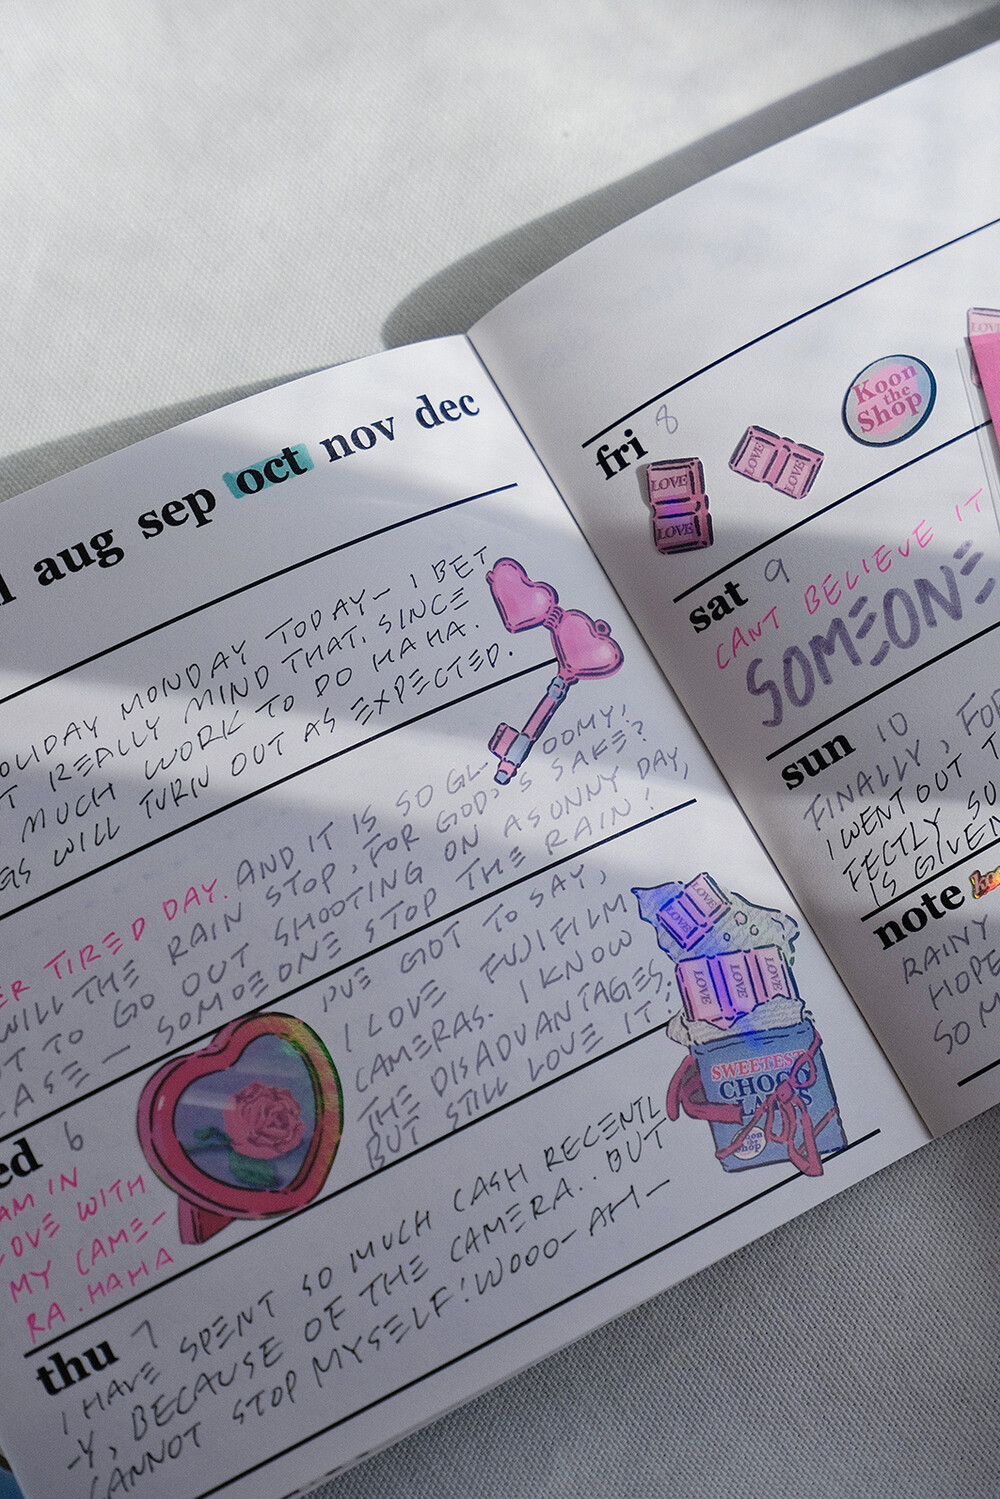 aug sep oct nov dec
HOLIDAY MONDAY TODAY— I BET
REALLY MIND THAT, SINCE
MUCH WORK TO DO HAHA.
WILL TURN OUT AS EXPECTED.
TIRED DAY. AND IT IS SO GL-OOMY,
WILL THE RAIN STOP, FOR GOD'S SAKE?
TO GO OUT SHOOTING ON A SUNNY DAY,
SOMEONE STOP THE RAIN!
6
AM IN
LOVE WITH
MY CAME-
RA. HAHA
I'VE GOT TO SAY,
I LOVE FUJIFILM
CAMERAS. I KNOW
THE DISADVANTAGES.
BUT STILL LOVE IT!
LOVE
LOVE
LOVE LOVE LOVE
SWEETEST
CHOCO
Koon
the
Shop
thu 7
I HAVE SPENT SO MUCH CASH RECENTL
-Y, BECAUSE OF THE CAMERA.. BUT
CANNOT STOP MYSELF! WOOO- AH—
fri 8
LOVE
LOVE
LOVE LOVE
Koon
the
Shop
LOVE
sat 9
CANT BELIEVE IT
SOMEONE
sun 10
FINALLY, FOR
I WENT OUT
FECTLY
IS GIVEN
note
RAINY
HOPE
SO M